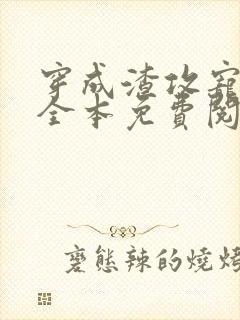 穿成渣攻寵
全本免費閱
麼態辣的燒烤